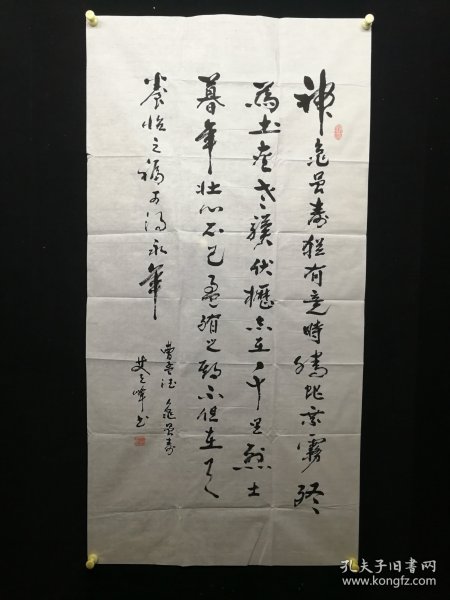 神龜虽壽猶有竟時騰蛇乘霧終
為土灰老骥伏櫪志在千里烈士
暮年壯心不已盈缩之期不但在天
養怡之福可得永年
曹孟德 龜虽壽
书
孔夫子旧书网
www.kongfz.com